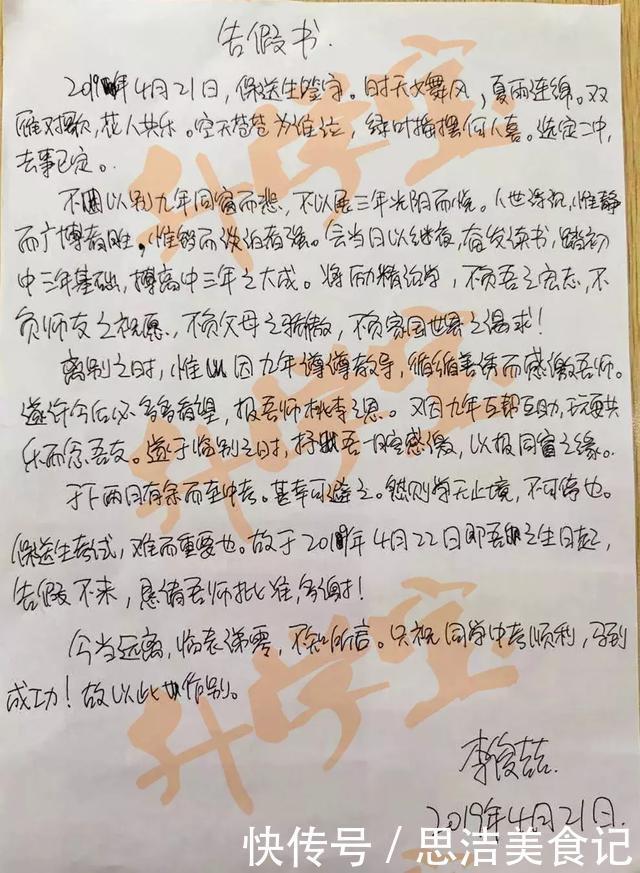 告假书.
2019年4月21日,保送生签字。时天女舞风,夏雨连绵。双
雁对摆欲,花人共乐。空天苍苍为谁泣,绿叶摇摆何人喜。选定二中,
去事已定。
不因以别九年同窗而悲,不以展三年光阴而悦。人世浮沉,惟静
而广博者胜,惟韧而淡泊者强。会当日以继夜,奋发读书,踏初
中三年基础,搏高中三年之大成。将励精治学,不负吾之宏志,不
负师友之祝愿,不负父母之骄傲,不负家国世界之渴求!
离别之时,惟以因九年谆谆教导,循循善诱而感激吾师。
遂许今后必多多看望,报吾师桃李之恩。又因九年互帮互助,玩耍共
乐而念吾友。遂于临别之时,抒吾一腔感激,以报同窗之缘。
于下两月有余而至中考。甚幸可避之。然则学无止境,不可停也。
保送生考试,难而重要也。故于2019年4月22日即吾之生日起,
告假不来,恳请吾师批准,多谢!
今当远离,临表涕零,不知所言。只祝同学中考顺利,马到
成功!故以此作别。
李俊喆.
2019年4月21日.
升学宝
升学宝
升学宝
快传号/思洁美食记